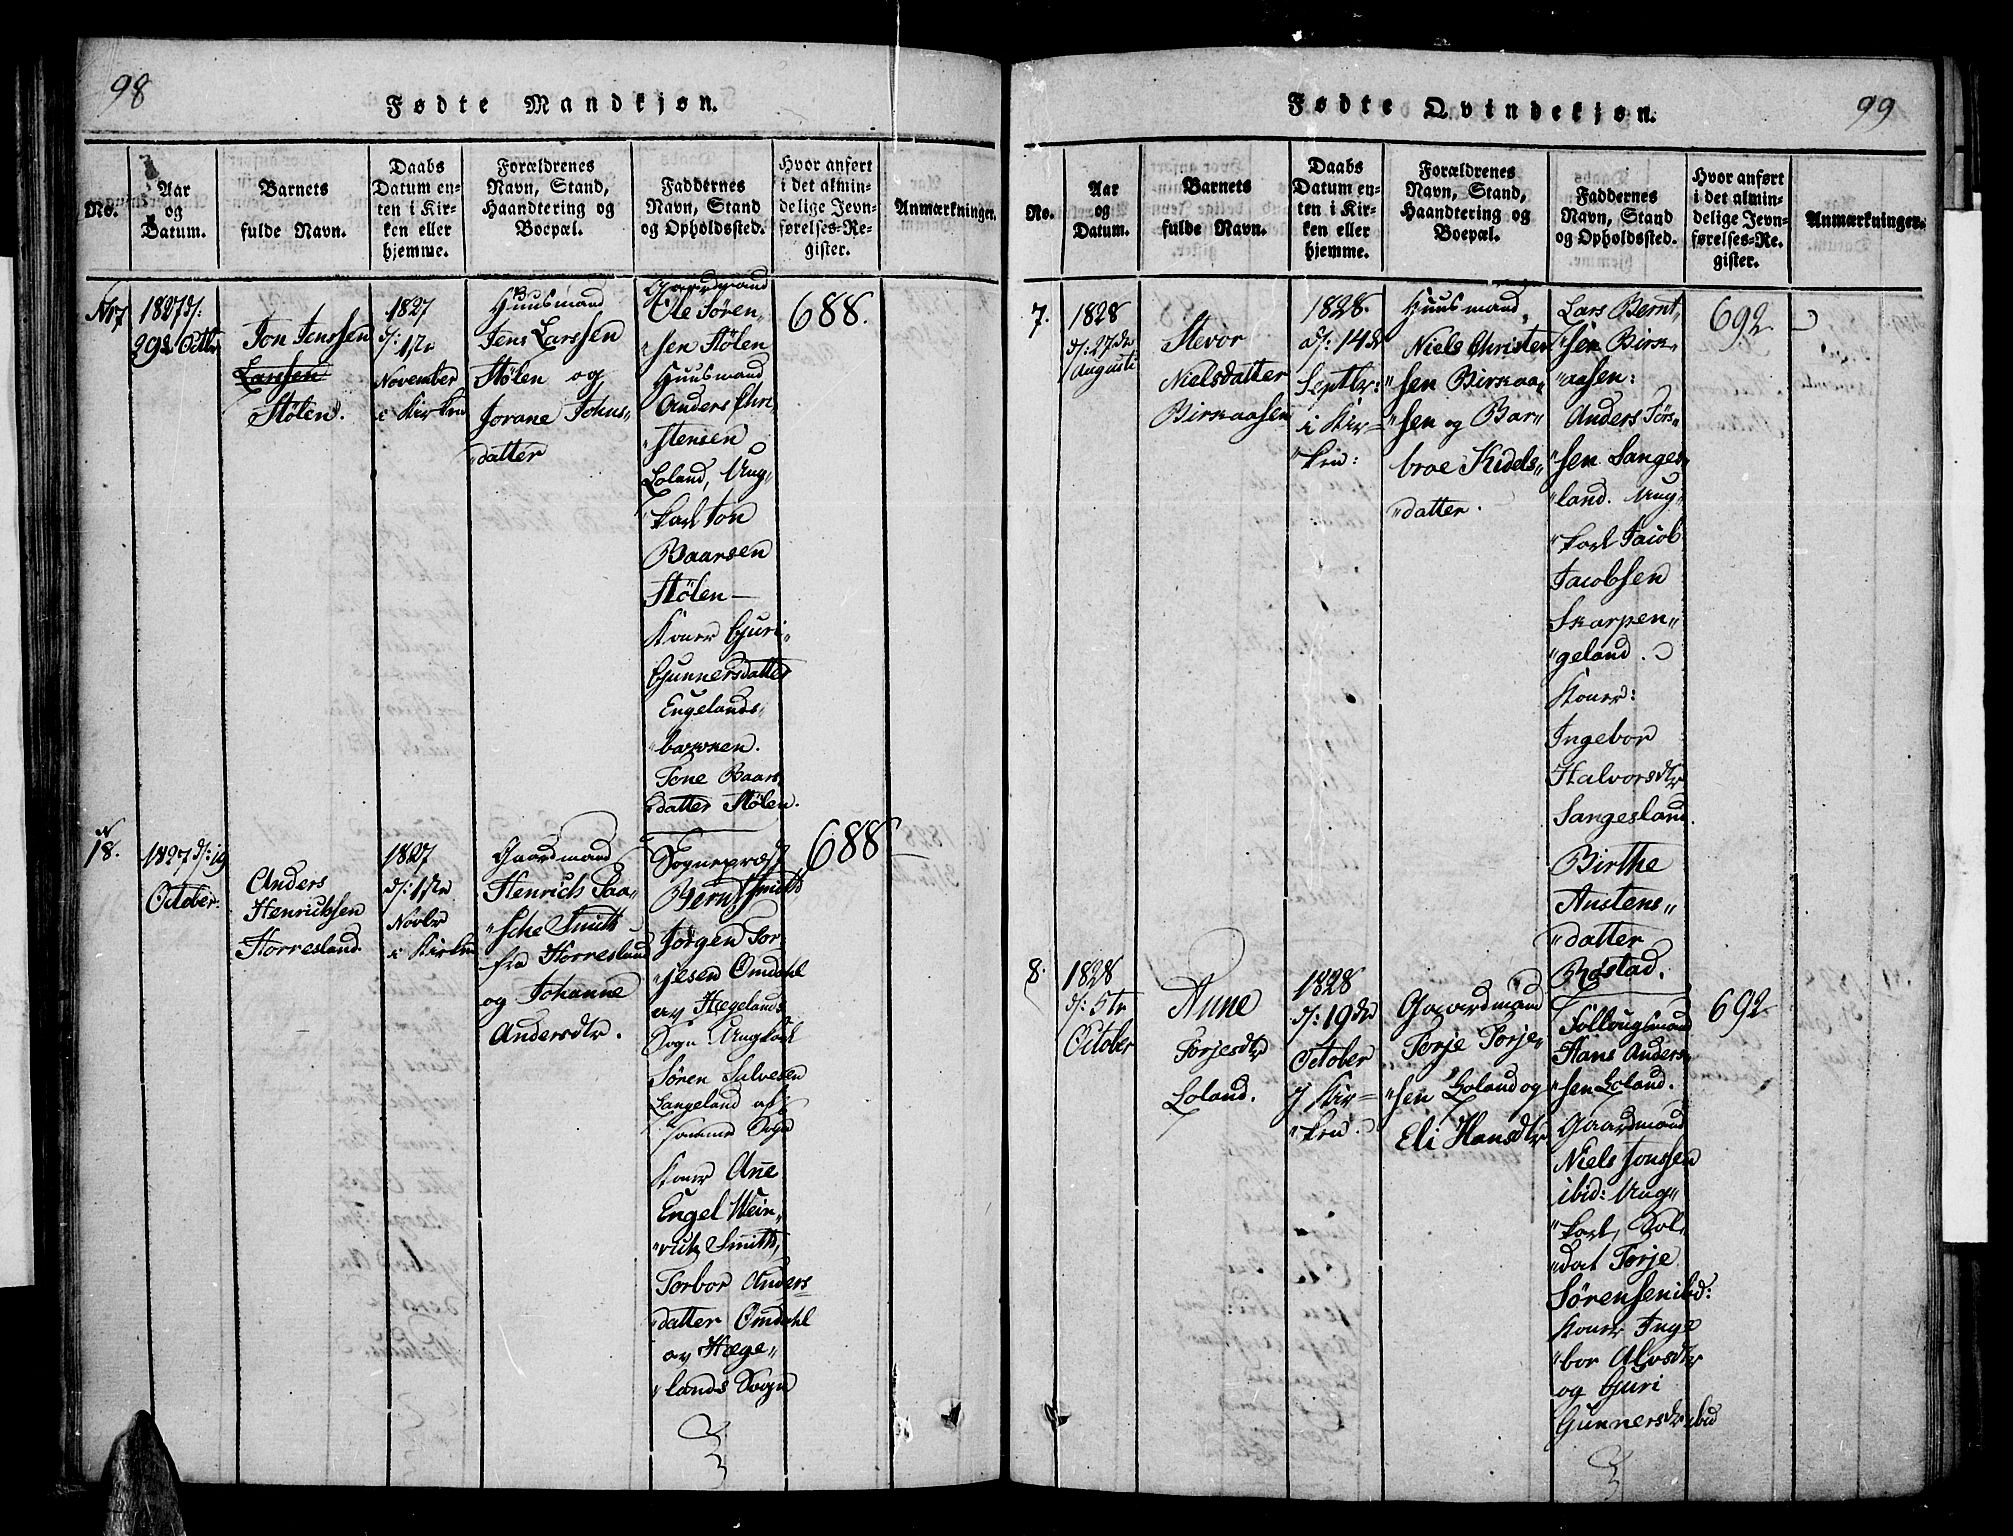 98
Fødte Mandkjøn.
No.
Aar
og
Datum.
Barnets
fulde Navn.
Daabs
Datum en-
ten i Kir-
ken eller
hjemme.
Forældrenes
Navn, Stand,
Haandtering og
Boepæl.
Faddernes
Navn, Stand
og Opholdssted.
Hvor anført
i det almin-
delige Jevn-
førelses-Re-
gister.
Anmærkninger.
1827 d:
Octbr
Jon Jenssen
Larssen
Stölen.
1827
d: 1ste
November
i Kirken
Huusmand
Jens Larssen
Stölen og
Jorane Johns"
"datter
Gaardmand
Ole Sören"
"sen Stölen
Huusmand
Anders Chri"
"stensen
Loland, Ung"
"karl Jon
Baarsen
Stölen—
Koner Gjuri"
Gunnersdatter
Engelands"
Tone Baars"
"datter Stölen.
688.
18.
1827 d: 19
October.
Anders
Henrichsen
Horresland.
1827
d: 1ste
Novbr
i Kirken
Gaardmand
Henrich Paa"
"sche Smith
fra Horresland
og Johanne
Andersdtr.
Sognepræst
Bernt Smith
Jörgen Tor"
"jesen Omdahl
av Hægelands
Sogn Ungkarl
Sören Salvesen
Langeland af
samme Sogn
Koner Ane
Engel Wein"
Smith,
Torbor Anders
"datter Omdahl
av Hæge"
"lands Sogn
688
99
Fødte Qvindekjøn.
No.
Aar
og
Datum.
Barnets
fulde Navn.
Daabs
Datum en-
ten i Kir-
ken eller
hjemme.
Forældrenes
Navn, Stand,
Haandtering og
Boepæl.
Faddernes
Navn, Stand
og Opholdssted.
Hvor anført
i det almin-
delige Jevn-
førelses-Re-
gister.
Anmærkninger.
7.
1828
d: 27de
Augusti
Stevor
Nielsdatter
Birkaasen
1828.
d: 14de
Septbr:
i Kir=
"ken:
Huusmand,
Niels Christen
sen Birkaa"
"sen og Bar"
broe Kidels"
"datter.
Lars Bernt"
"sen Birk"
"aasen:
Anders Törs"
"sen Sanges"
"land. Ung"
"karl Jacob
Jacobsen
Skarpen"
"geland.
Koner:
Ingebor
Halvorsdtr
Sangesland.
Birthe
Austens"
"datter
Röstad.
692
8.
1828
d: 5te
October
Anne
Torjesdtr
Loland.
1828
d: 19de
October
i Kir=
"ken.
Gaardmand
Torje Torje"
"sen Loland og
Eli Hansdtr
Hans Anders"
"sen Loland.
Gaardmand
Niels Jonssen
ibid: Ung"
"karl, Sol"
"dat Torje
Sörensen ibd:
Koner Inge
"bor Alvsdtr
og Guri
Gunnersdtr ibid
692